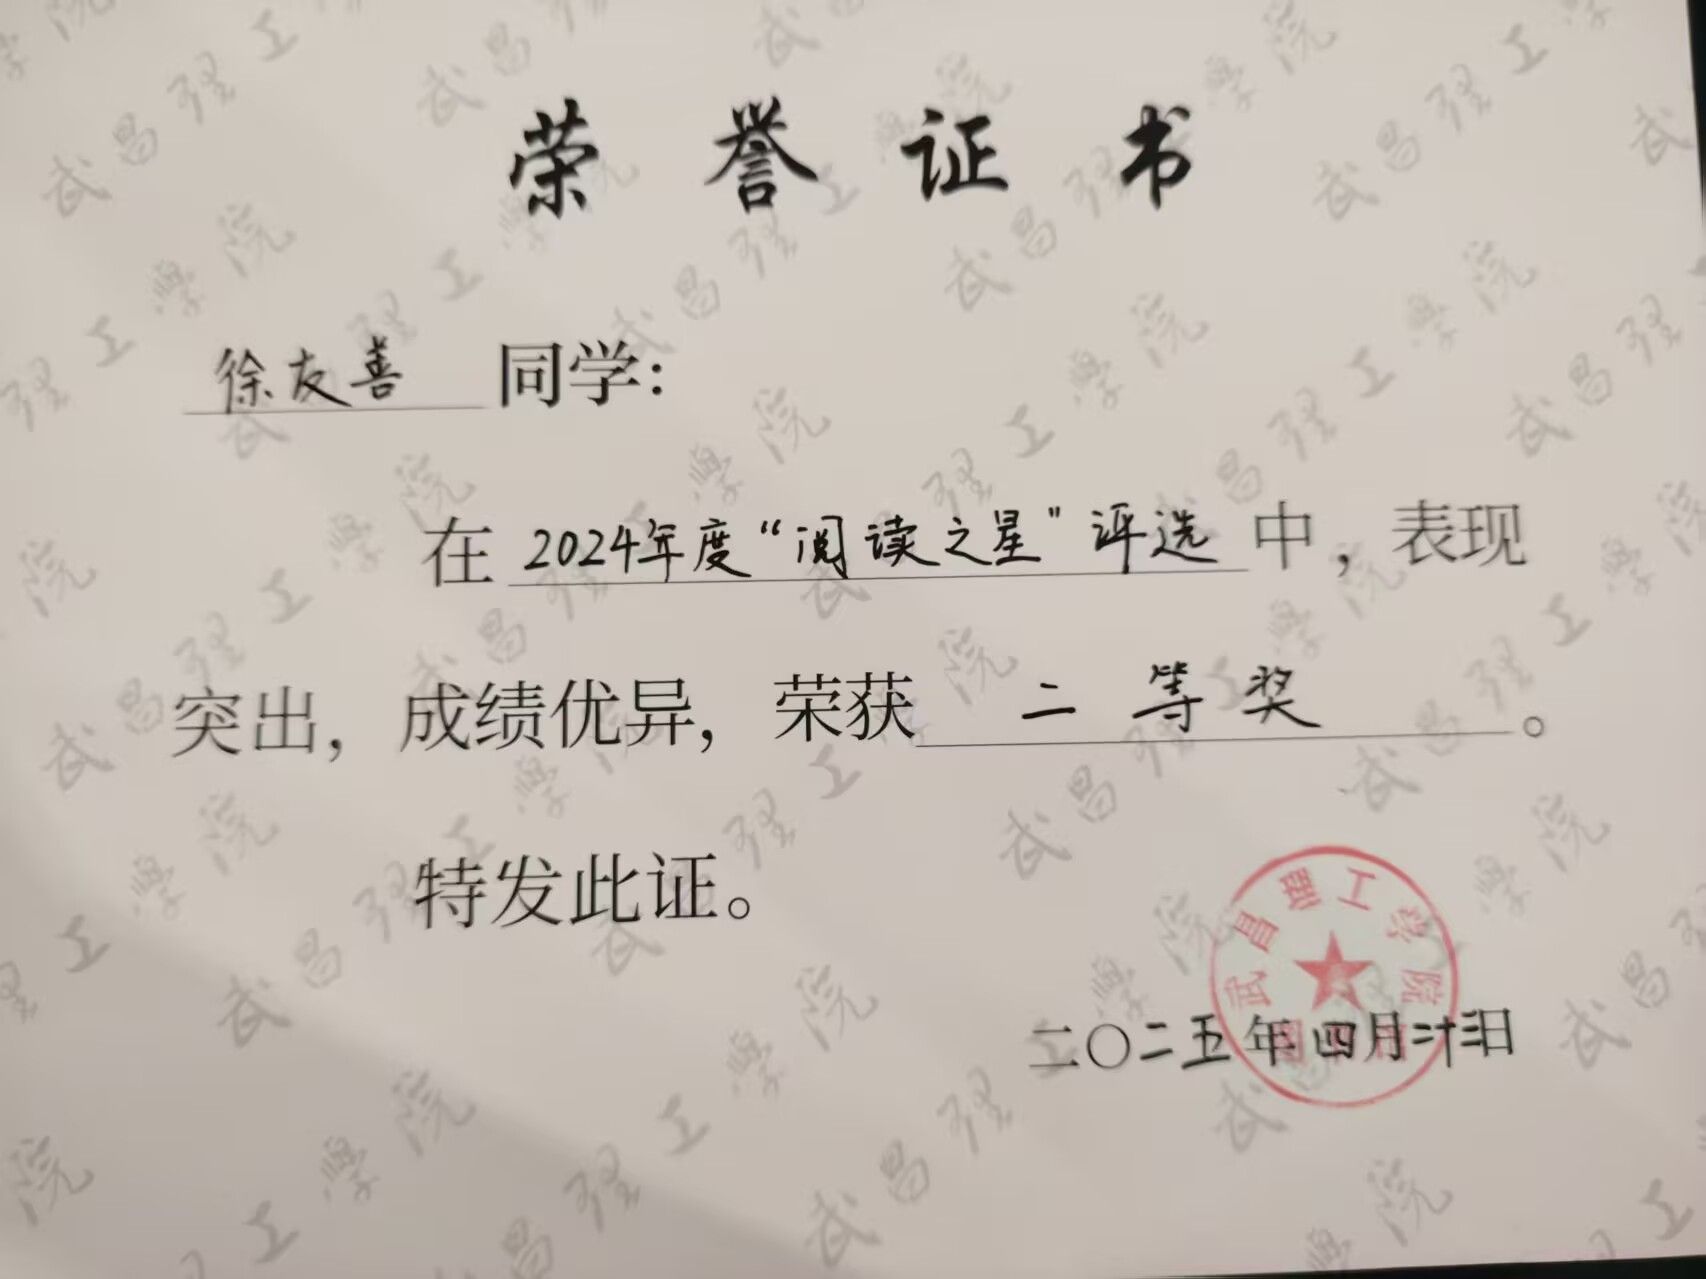 荣誉证书
徐友善 同学:
在 2024年度“阅读之星”评选 中，表现
突出，成绩优异，荣获 二等奖 。
特发此证。
武昌理工学院
二〇二五年四月廿三日